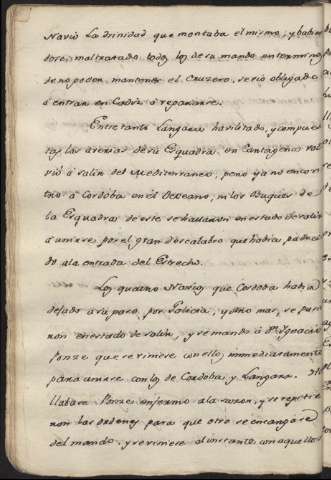 Navio La trinidad que montaba el mismo, y haber
dose maltratado todos los de su mando en termino
de no poder mantener el Cruzero, se vio obligado
á entrar en Cadiz á repararse.
Entre tanto Langara havilitado, y compues
tas las averias de su Esquadra, en Cartagena vol
vió á salir del Mediterraneo, pero ya no encon
tró á Córdoba en el Occeano, ni los Buques de
la Esquadra de este se hallavan en estado de salir
á unirse, por el gran descalabro que havia padeci
do a la entrada del Estrecho.
Los quatro Navios que Cordoba havia
dejado a su paso, por Galicia, y otro mas, se pusie
ron en estado de salir, y se mandó á Dn. Ygnacio
Ponze que se viniese con ellos, immediatamente
para unirse con los de Cordoba, y Langara.
llabase Ponze enfermo a la sazon, y se repitie
ron las ordenes para que otro se encargase
del mando, y se viniese al instante con aquellos